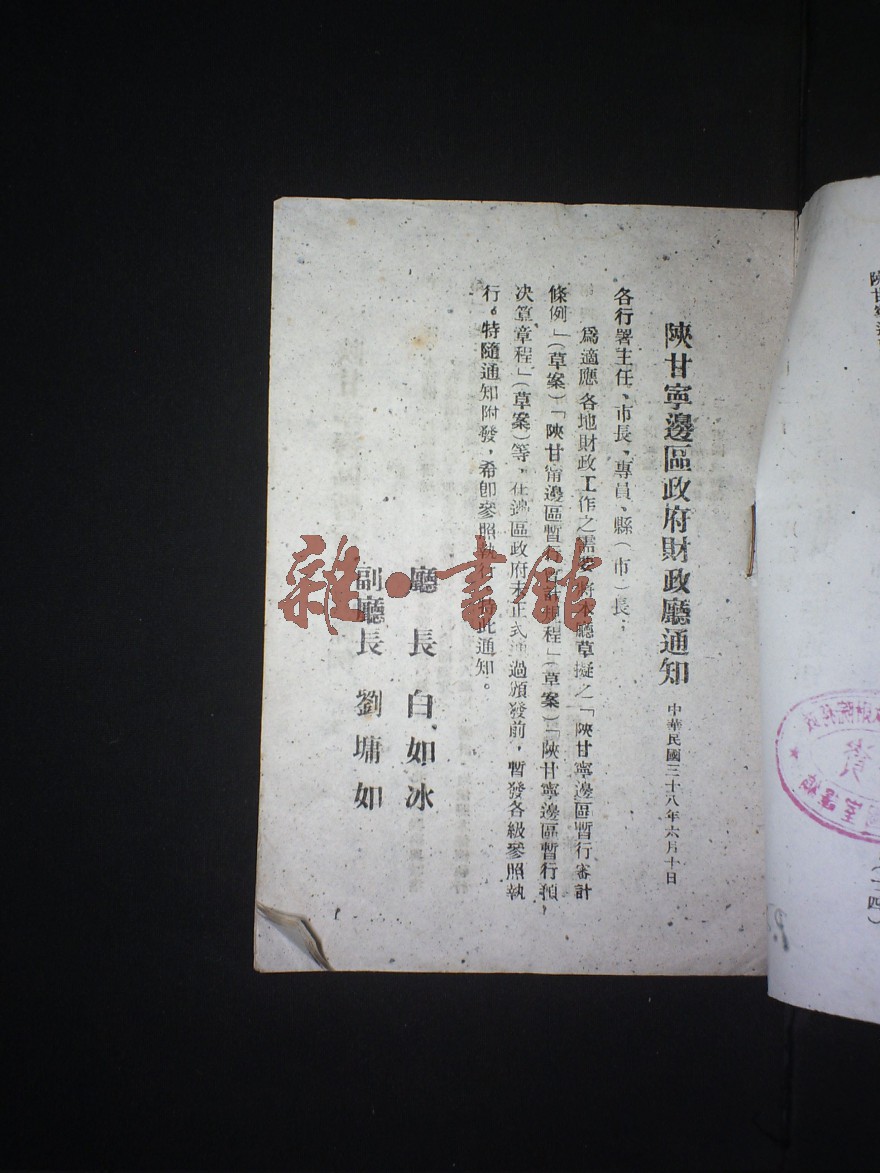 陝甘寧邊區政府財政廳通知
中華民國三十八年六月十日
各行署主任、市長、專員、縣（市）長；
爲適應各地財政工作之需要將本廳草擬之「陝甘寧邊區暫行審計
條例」（草案）「陝甘甯邊區暫行會計規程」（草案）「陝甘寧邊區暫行預，
決算章程」（草案）等，在邊區政府未正式通過頒發前，暫發各級參照執
行。特隨通知附發，希卽參照執行。此通知。
廳長 白如冰
副廳長 劉墉如
雜·書館